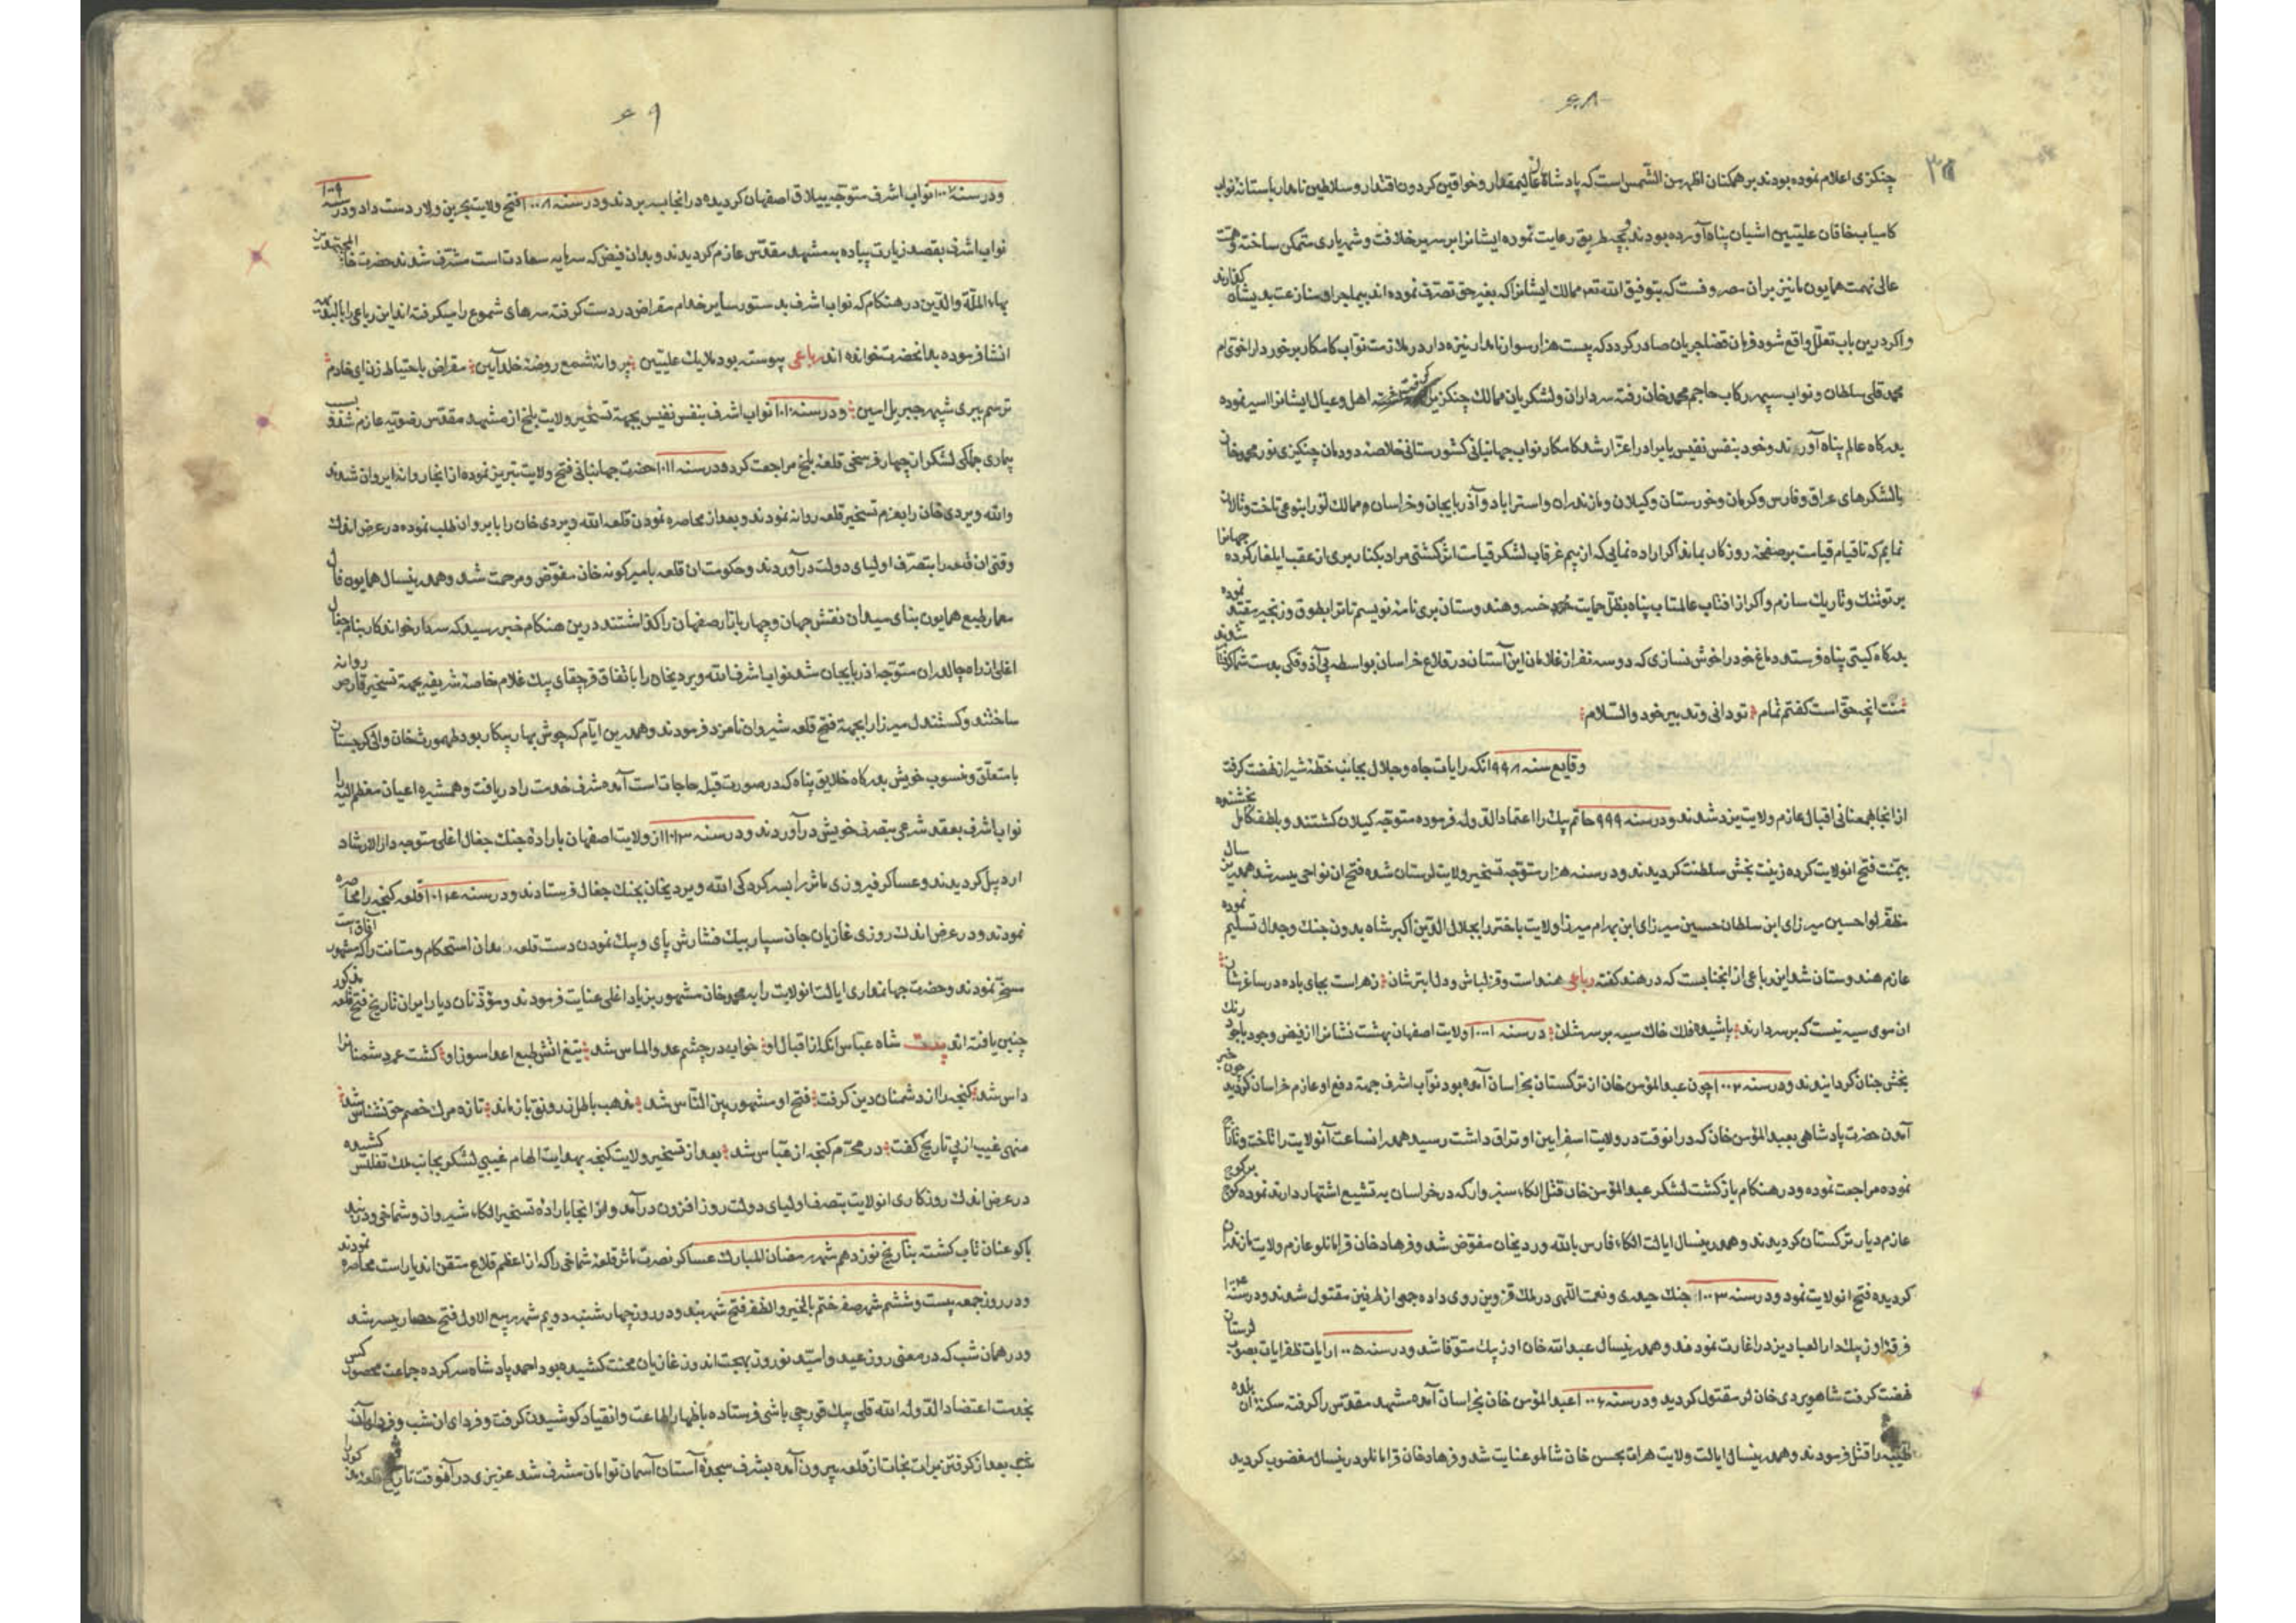 ۶۸
چنکزی اعلام نموده بودند بر همکنان اظهر من الشمس است که پادشاهان عالیمقدار و خواقین کردون اقتدار و سلاطین نامدار باستانه نواب
کامیاب خاقان علیین اشیان پناه آورده بودند بچه طریق رعایت نموده ایشانرا بر سریر خلافت و شهریاری متمکن ساخته و همت
عالی نهمت همایون ما نیز بر ان مصروفست که بتوفیق الله تعم ممالک ایشانرا که بغیر حق تصرف نموده اند بیماجرا و منازعت بدیشان
واکر درین باب تعلل واقع شود فرمان قضا جریان صادر کردد که بیست هزار سوار نامدار نیزه دار در ملازمت نواب کامکار برخوردار اخوی ام
محمد قلی سلطان و نواب سپهر رکاب حاجم محمد خان رفته سرداران و لشکریان ممالک چنکزی را کرفته اهل و عیال ایشانرا اسیر نموده
بدرکاه عالم پناه آورند و خود بنفس نفیس با برادر اعز ارشد کامکار نواب جهانبانی کشورستانی خلاصه دودمان چنکیزی نور محمد خان
با لشکرهای عراق و فارس و کرمان و خوزستان و کیلان و مازندران و استراباد و آذربایجان و خراسان ممالک تو را بنوعی تاخت و تالان
نمایم که تا قیام قیامت بر صفحه روزکار بماند اکر اراده نمایی که از بیم غرقاب لشکر قیامت اثر کشتی مراد بکنار بری از عقب ایلغار کرده جهانرا
بر تو تنک و تاریک سازم و اکر از افتاب عالمتاب پناه بظل حمایت خسرو هندوستان بری نامه نویسم تا ترا بطوق و زنجیر مقید نموده
بدرکاه کیتی پناه فرستد دماغ خود را خوش نسازی که دو سه نفر از غلامان این آستان در قلاع خراسان بواسطه بی آذوقکی بدست شما
منت انچه حق است کفتم تمام تو دانی و تدبیر خود والسلام
وقایع سنه ۹۹۸ انکه رایات جاه و جلال بجانب خطه شیراز نهضت کرفت
از انجا همعنانی اقبال عازم ولایت یزد شدند و در سنه ۹۹۹ حاتم بیک را اعتماد الدوله فرموده متوجه کیلان کشتند و بلطف کامل بخشنده
بیمنت فتح انولایت کرده زینت بخش سلطنت کردیدند و در سنه هزار متوجه تسخیر ولایت لرستان شده فتح ان نواحی میسر شد همدرین سال
مظفر لوا حسین میرزای ابن سلطان حسین میرزای ابن بهرام میرزا ولایت باختر را بجلال الدین اکبر شاه بدون جنک و جدال تسلیم نموده
عازم هندوستان شد این رباعی از انجنابست که در هند کفته رباعی هند است و قزلباش و دل ابترشان زهر است بجای باده در ساغرشان
ان موی سیه نیست که بر سر دارند پاشیده فلک خاک سیه بر سرشان در سنه ۱۰۰۱ ولایت اصفهان بهشت نشانرا از فیض وجود باجود رنک
بخش جنان کردانیدند و در سنه ۱۰۰۲ چون عبد المؤمن خان از ترکستان بخراسان آمده بود نواب اشرف جهت دفع او عازم خراسان کردید چون خبر
آمدن حضرت پادشاهی بعبد المؤمن خان که در انوقت در ولایت اسفراین اوتراق داشت رسید همدرانساعت آنولایت را تاخت و تاراج
نموده مراجعت نموده و در هنکام بازکشت لشکر عبد المؤمن خان قتل الکاء سبزوار که در خراسان به تشیع اشتهار دارند نموده کوچ بر کوچ
عازم دیار ترکستان کردیدند و همدرینسال ایالت الکاء فارس بالله وردیخان مفوض شد و فرهاد خان قرامانلو عازم ولایت مازندران
کردیده فتح انولایت نمود و در سنه ۱۰۰۳ جنک حیدری و نعمت اللهی در ملک قزوین روی داده جمعی از طرفین مقتول شدند و در سنه ۱۰۰۴
فرقه اوزبیک دار العباد یزد را غارت نمودند و همدرینسال عبدالله خان اوزبیک متوفا شد و در سنه ۱۰۰۵ رایات ظفر ایات بصوب لرستان
نهضت کرفت شاهویردی خان لر مقتول کردید و در سنه ۱۰۰۶ عبد المؤمن خان بخراسان آمده مشهد مقدس را کرفته سکنه ان بلده
طیبه را قتل فرمودند و همدرینسال ایالت ولایت هرات بحسن خان شاملو عنایت شد و فرهاد خان قرامانلو درینسال مغضوب کردید
۶۹
و در سنه ۱۰۰۷ نواب اشرف متوجه ییلاق اصفهان کردیده در انجا بسر بردند و در سنه ۱۰۰۸ فتح ولایت بحرین و لار دست داد و در سنه ۱۰۰۹
نواب اشرف بقصد زیارت پیاده به مشهد مقدس عازم کردیدند و بدان فیض که سرمایه سعادت است مشرف شدند حضرت خاتم المجتهدین
بهاء الملة والدین در هنکام که نواب اشرف بدستور سایر خدام مقراض در دست کرفته سرهای شموع را میکرفته اند این رباعی را بالبدیهه
انشا فرموده بدانحضرت خوانده اند رباعی پیوسته بود ملایک علیین پروانه شمع روضه خلد آیین مقراض باحتیاط زن ای خادم
ترسم ببری شهپر جبریل امین و در سنه ۱۰۱۰ نواب اشرف بنفس نفیس بجهة تسخیر ولایت بلخ از مشهد مقدس رضویه عازم شده و بسبب
بیماری جملکی لشکر از چهار فرسخی قلعه بلخ مراجعت کرد و در سنه ۱۰۱۱ حضرت جهانبانی فتح ولایت تبریز نموده از انجا روانه ایروان شدند
والله ویردی خان را بعزم تسخیر قلعه روانه نمودند و بعد از محاصره نمودن قلعه الله ویردی خان را بایروان طلب نموده در عرض اندک
وقتی ان قلعه را بتصرف اولیای دولت درآوردند و حکومت ان قلعه بامیر کونه خان مفوض و مرحمت شد و همدرینسال همایون فال
معمار طبع همایون بنای میدان نقش جهان و چهار بازار صفهان را کذاشتند درین هنکام خبر رسید که سردار خواندکار بنام جغال
اغلی از راه چالدران متوجه اذربایجان شد نواب اشرف الله ویردیخان را باتفاق قرچقای بیک غلام خاصه شریفه بجهة تسخیر قارص روانه
ساختند و کستندل میرزا را بجهة فتح قلعه شیروان نامزد فرمودند و همدرین ایام که جوش بهار پیکار بود طهمورث خان والی کرجستان
با متعلق و منسوب خویش بدرکاه خلایق پناه که در صورت قبله حاجات است آمده شرف خدمت را دریافت و همشیره اعیان معظم الیه را
نواب اشرف بعقد شرعی بتصرف خویش درآوردند و در سنه ۱۰۱۳ از ولایت اصفهان باراده جنک جغال اغلی متوجه دار الارشاد
اردبیل کردیدند و عساکر فیروزی ماثر را بسرکردکی الله ویردیخان بجنک جغال فرستادند و در سنه ۱۰۱۴ قلعه کنجه را محاصره
نمودند و در عرض اندک روزی غازیان جان سپار بیک فشارش پای و بیک نمودن دست قلعه بدان استحکام و متانت را که مشهور آفاق است
مسخر نمودند و حضرت جهانمداری ایالت انولایت را به محمد خان مشهور بزیاد اغلی عنایت فرمودند و مؤذنان دیار ایران تاریخ فتح قلعه مذکور
چنین یافته اند بیت شاه عباس انکه از اقبال او خواب در چشم عدو الماس شد تیغ اتش طبع اعدا سوز او کشت عمر دشمنانرا
داس شد کنجه را از دشمنان دین کرفت فتح او مشهور بین الناس شد مذهب باطل ز رونق باز ماند تازه مرک خصم حق نشناس شد
منهی غیب از پی تاریخ کفت در محرم کنجه از عباس شد بعد از تسخیر ولایت کنجه بهدایت الهام غیبی لشکر بجانب ملک تفلیس کشیده
در عرض اندک روزکاری انولایت بتصرف اولیای دولت روز افزون درآمد و از انجا باراده تسخیر الکاء شیروان و شماخی و دربند
باکو عنان تاب کشته بتاریخ نوزدهم شهر رمضان المبارک عساکر نصرت ماثر قلعه شماخی را که از اعظم قلاع متقن اندیار است محاصره نمودند
و در روز جمعه بیست و ششم شهر صفر ختم بالخیر والظفر فتح شهر بند و در روز چهارشنبه دویم شهر ربیع الاول فتح حصار میسر شد
و در همان شب که در معنی روز عید و امید نوروز بهجت اندوز غازیان محنت کشیده بود احمد پادشاه سرکرده جماعت محصور کس
بخدمت اعتضاد الدوله الله قلی بیک قورچی باشی فرستاده باظهار اطاعت و انقیاد کوشیدن کرفت و فردای ان شب
شب بعد از کرفتن برات نجات از قلعه بیرون آمده بشرف سجده آستان آسمان توامان مشرف شد عزیزی در آنوقت تاریخ